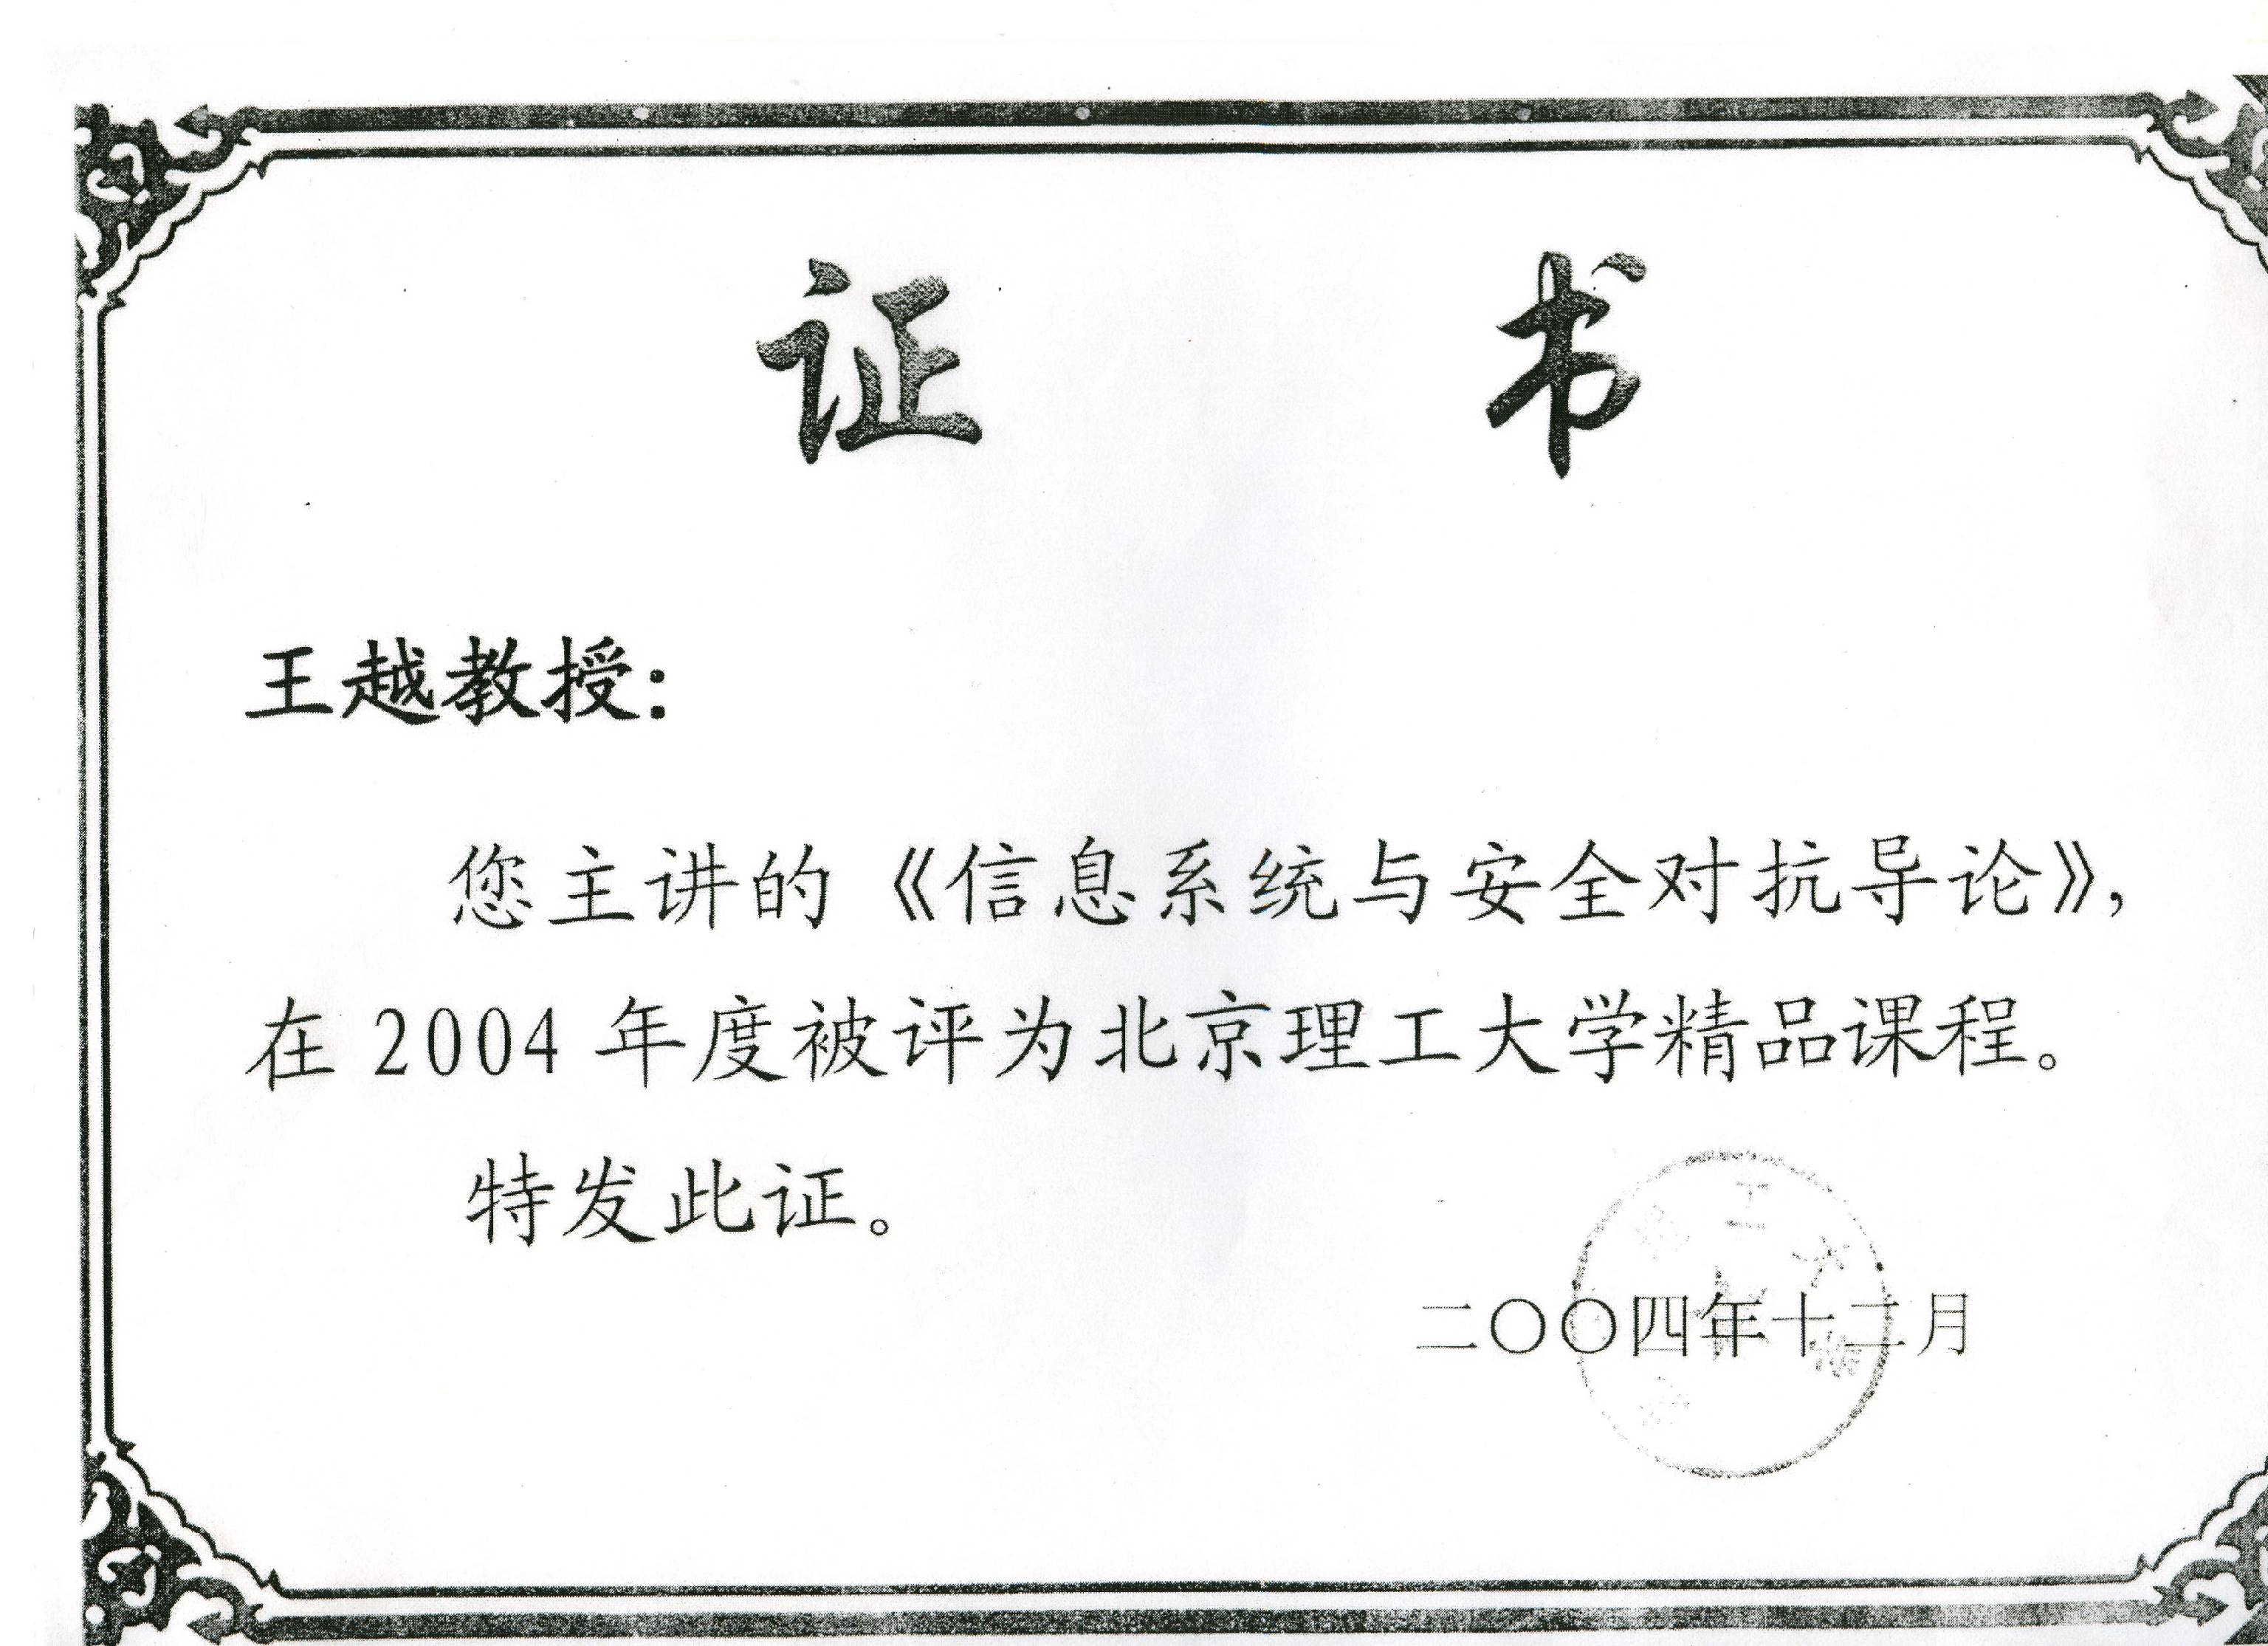 证 书
王越教授：
您主讲的《信息系统与安全对抗导论》，
在 2004 年度被评为北京理工大学精品课程。
特发此证。
二〇〇四年十二月